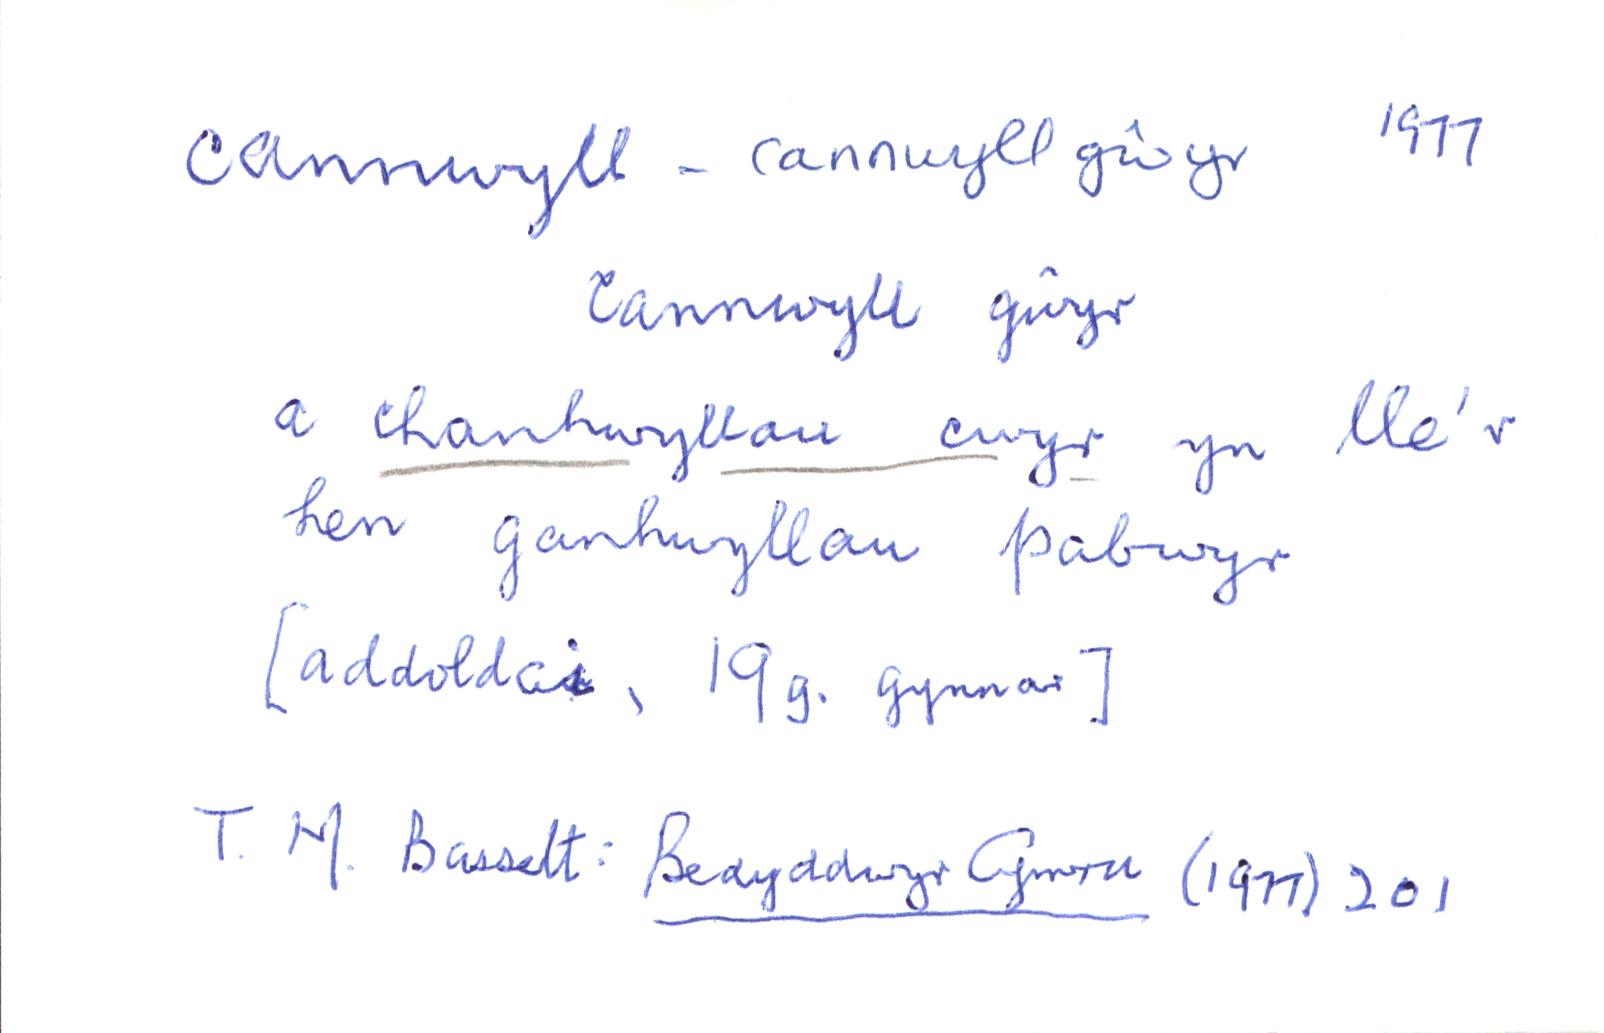 cannwyll - cannwyll gŵyr 1977
cannwyll gŵyr
a chanhwyllau cwyr yn lle'r
hen ganhwyllau pabwyr
[addoldai, 19g. gynnar]
T. M. Bassett: Bedyddwyr Cymru (1977) 201